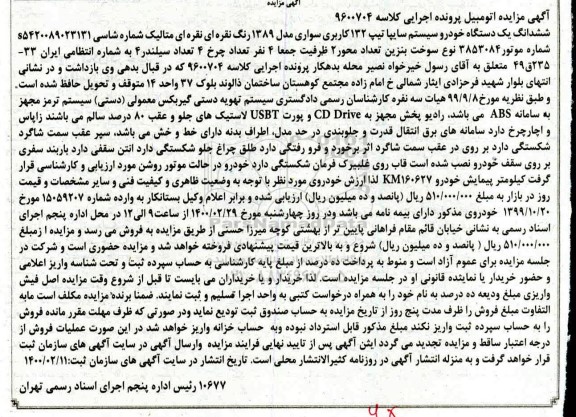 آگهی مزایده
آگهی مزایده اتومبیل پرونده اجرایی کلاسه ۹۶۰۰۷۰۴
ششدانگ یک دستگاه خودرو سیستم سایپا تیپ ۱۳۲ کاربری سواری مدل ۱۳۸۹ رنگ نقره ای نقره ای متالیک شماره شاسی s۵۴۲۰۰۸۹۰۲۳۱۳۱
شماره موتور ۳۸۵۳۰۸۴ نوع سوخت بنزین تعداد محور ۲ ظرفیت جمعا ۴ نفر تعداد چرخ ۴ تعداد سیلندر ۴ به شماره انتظامی ایران ۳۳-
۲۳۵ق۴۹ متعلق به آقای رسول خیرخواه نصیر محله بدهکار پرونده اجرایی کلاسه ۹۶۰۰۷۰۴ که در قبال بدهی وی بازداشت و در نشانی
انتهای بلوار شهید فرحزادی ایثار شمالی خ امام زاده مجتمع کوهستان ساختمان ذالوند بلوک ۳۷ واحد ۱۴ متوقف و تحویل حافظ شده است.
و طبق نظریه مورخ ۹۹/۹/۸ هیات سه نفره کارشناسان رسمی دادگستری سیستم تهویه دستی گیربکس معمولی (دستی) سیستم ترمز مجهز
به سامانه ABS می باشد، رادیو پخش مجهز به CD Drive و پورت USBT لاستیک های جلو و عقب ۸۰ درصد سالم می باشند زاپاس
و آچارچرخ دارد سامانه های برق انتقال قدرت و جلوبندی در حد مدل، اطراف بدنه دارای خط و خش می باشد، سپر عقب سمت شاگرد
شکستگی دارد بر روی در عقب سمت شاگرد اثر برخورد و فرو رفتگی دارد طلق چراغ جلو شکستگی دارد انتن سقفی دارد باربند سفری
بر روی سقف خودرو نصب شده است قاب روی غلبیرک فرمان شکستگی دارد خودرو در حالت موتور روشن مورد ارزیابی و کارشناسی قرار
گرفت کیلومتر پیمایش خودرو KM۱۶۰۶۲۷ لذا ارزش خودروی مورد نظر با توجه به وضعیت ظاهری و کیفیت فنی و سایر مشخصات و قیمت
روز در بازار به مبلغ ۵۱۰/۰۰۰/۰۰۰ ریال (پانصد و ده میلیون ریال) ارزیابی شده و برابر اعلام وکیل بستانکار به وارده شماره ۱۵۰۵۹۲۰۷ مورخ
۱۳۹۹/۱۰/۲۰ خودروی مذکور دارای بیمه نامه می باشد ودر روز چهارشنبه مورخ ۱۴۰۰/۰۲/۲۹ از ساعت ۹ الی ۱۲ در محل اداره پنجم اجرای
اسناد رسمی به نشانی خیابان قائم مقام فراهانی پایین تر از بهشتی کوچه میرزا حسنی از طریق مزایده به فروش می رسد و مزایده از مبلغ
۵۱۰/۰۰۰/۰۰۰ ریال ( پانصد و ده میلیون ریال) شروع و به بالاترین قیمت پیشنهادی فروخته خواهد شد و مزایده حضوری است و شرکت در
جلسه مزایده برای عموم آزاد است و منوط به پرداخت ده درصد از مبلغ پایه کارشناسی به حساب سپرده ثبت و تحت شناسه واریز اعلامی
و حضور خریدار یا نماینده قانونی او در جلسه مزایده است. لذا خریدار و یا خریداران می بایست تا قبل از شروع وقت مزایده اصل فیش
واریزی مبلغ ودیعه ده درصد به نام خود را به همراه درخواست کتبی به واحد اجرا تسلیم و ثبت نمایند. ضمنا برنده مزایده مکلف است مابه
التفاوت مبلغ فروش را ظرف مدت پنج روز از تاریخ مزایده به حساب صندوق ثبت تودیع نماید ودر صورتی که ظرف مهلت مقرر مانده فروش
را به حساب سپرده ثبت واریز نکند مبلغ مذکور قابل استرداد نبوده وبه حساب خزانه واریز خواهد شد در این صورت عملیات فروش از
درجه اعتبار ساقط و مزایده تجدید می گردد ایثن آگهی پس از تایید نهایی فرایند مزایده وارسال آگهی در سایت آگهی های سازمان ثبت
قرار خواهد گرفت و به منزله انتشار آگهی در روزنامه کثیرالانتشار محلی است. تاریخ انتشار در سایت آگهی های سازمان ثبت: ۱۴۰۰/۰۲/۱۱
۱۰۶۷۷ رئیس اداره پنجم اجرای اسناد رسمی تهران